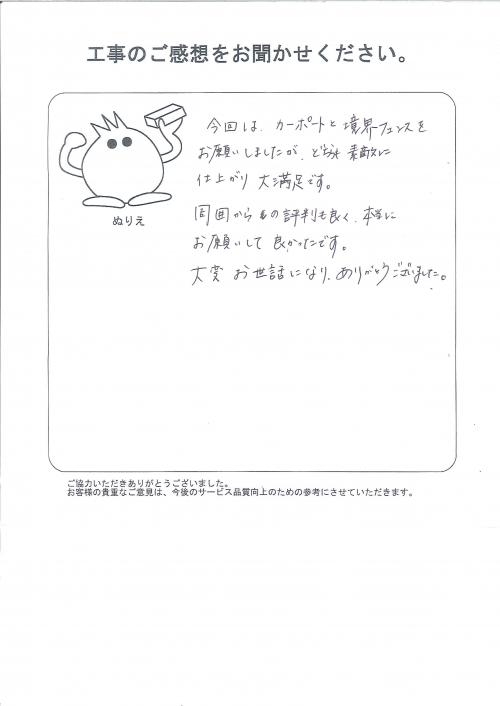 工事のご感想をお聞かせください。
ぬりえ
今回は、カーポートと境界フェンスを
お願いしましたが、どちらも素敵に
仕上がり大満足です。
周囲からもの評判も良く、本当に
お願いして良かったです。
大変お世話になり、ありがとうございました。
ご協力いただきありがとうございました。
お客様の貴重なご意見は、今後のサービス品質向上のための参考にさせていただきます。